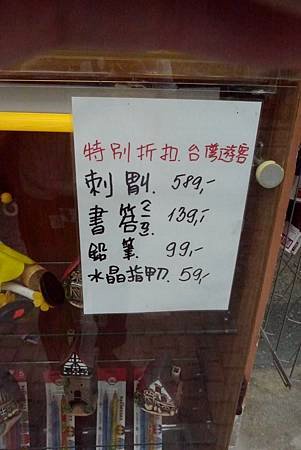 特別折扣.台灣遊客
刺蝟. 589,-
書签 139,-
鉛筆 99,-
水晶指甲刀. 59,-